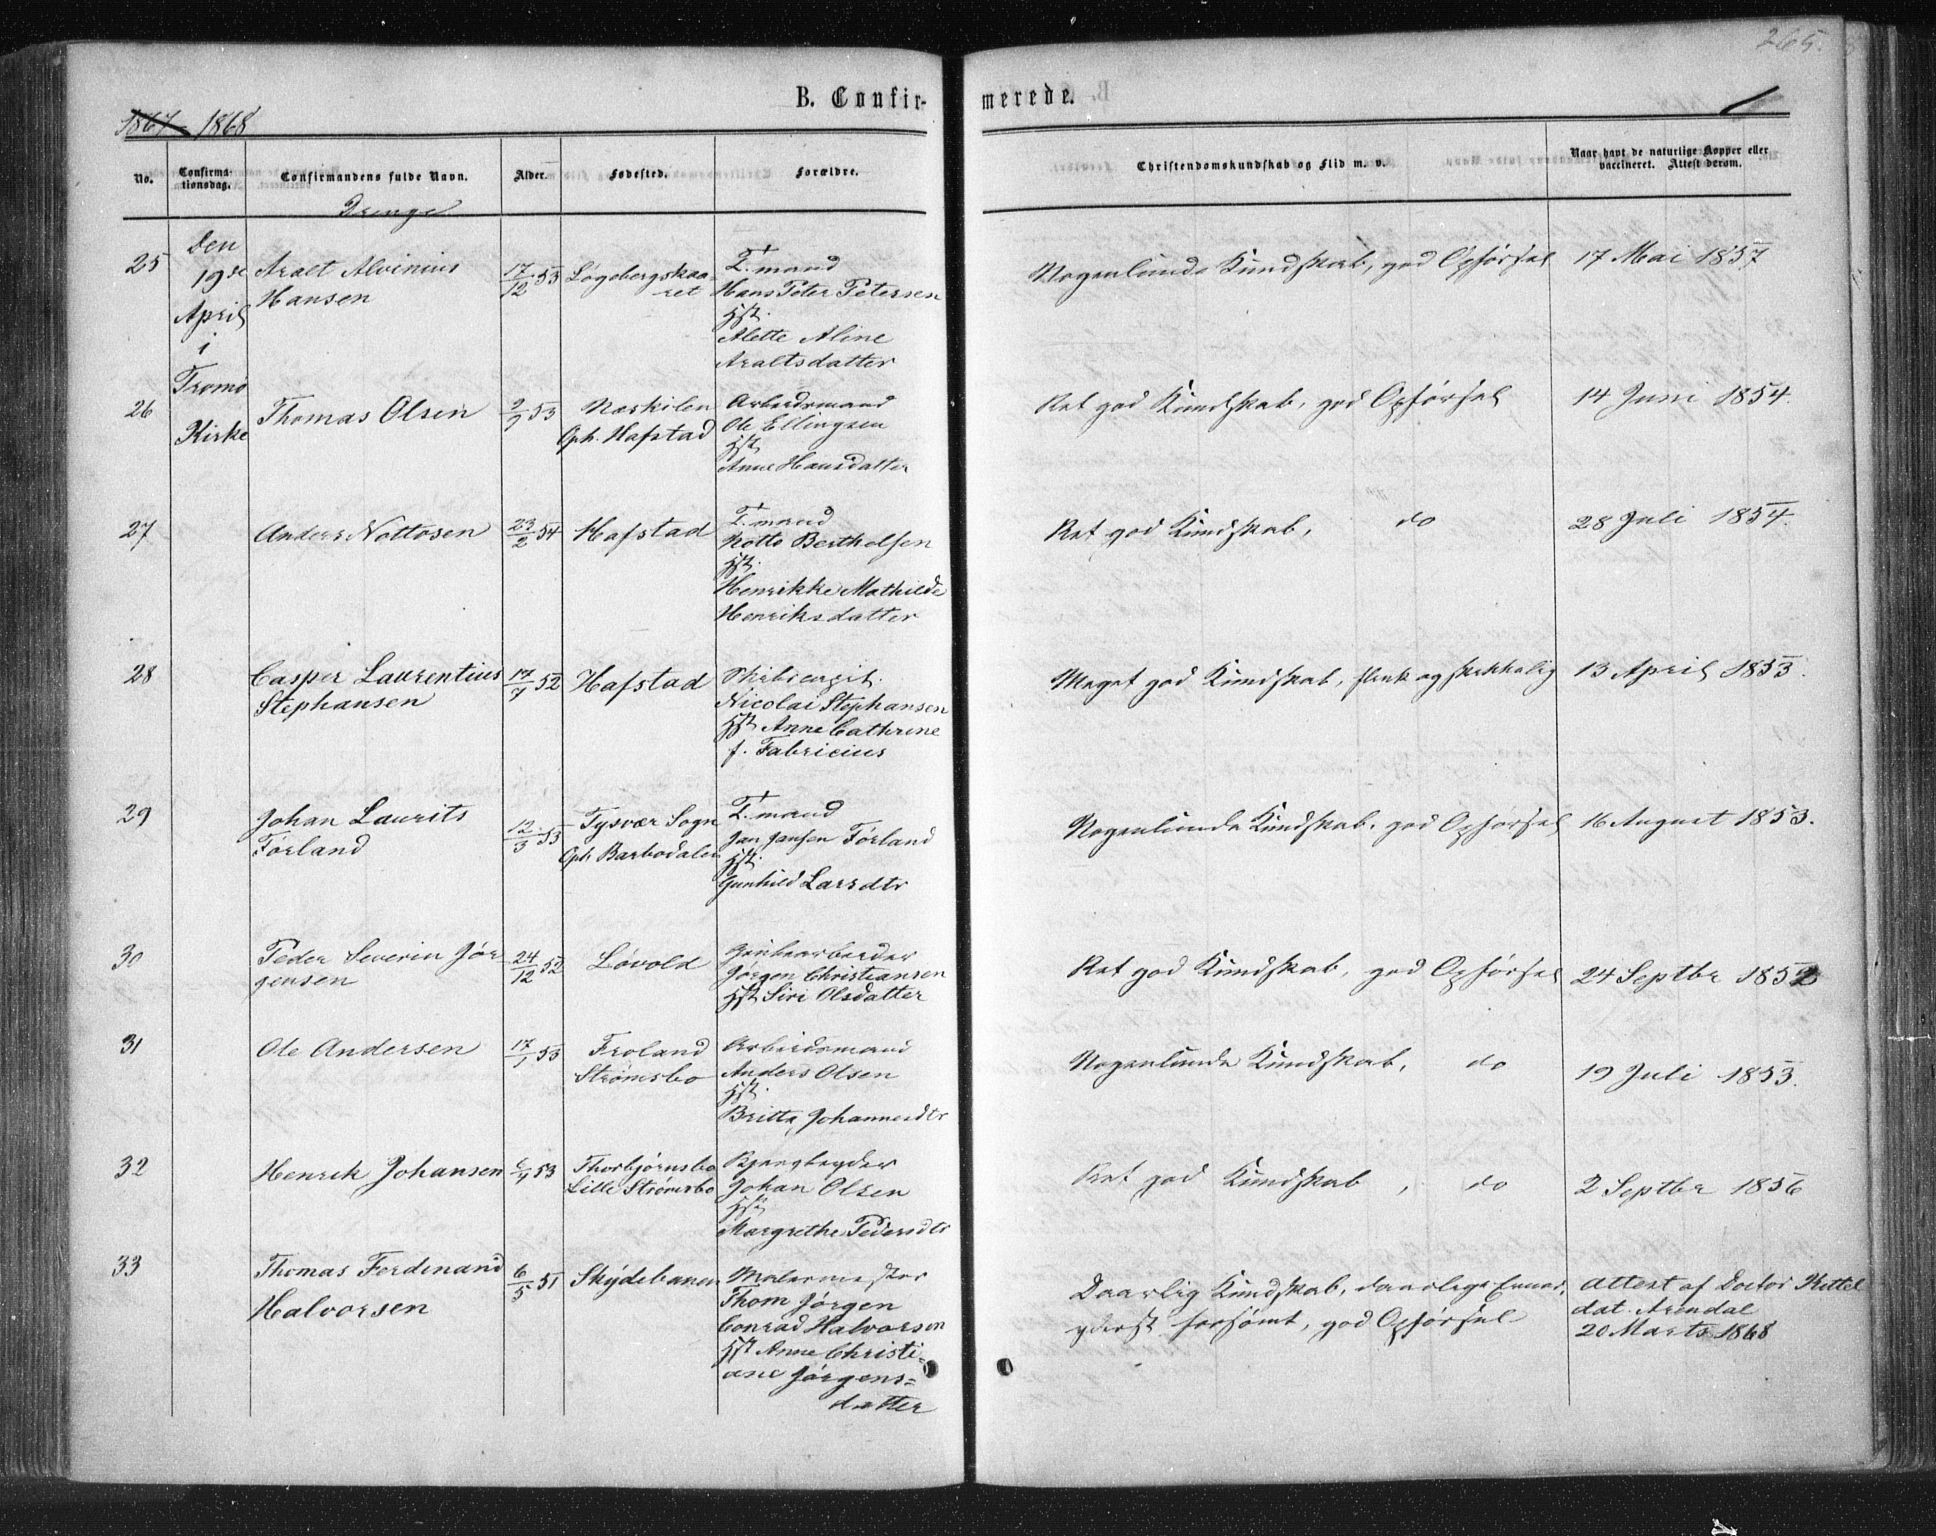 265.
B. Confir- merede.
1867 1868
No.
Confirma-
tionsdag.
Confirmandens fulde Navn.
Alder.
Fødested.
Forældre.
Christendomskundskab og Flid m. v.
Naar havt de naturlige Kopper eller
vaccineret. Attest derom.
Drenge
Den
19de
April
i
Tromø
Kirke
25
Aralt Alvinius
Hansen
17/12 53
Løgebergskaa
ret
T.mand
Hans Peter Petersen
Hst.
Alette Aline
Araltsdatter
Nogenlunde Kundskab, god Opførsel
17 Mai 1857
26
Thomas Olsen
2/9 53
Næskilen
Oph. Hafstad
Arbeidsmand
Ole Ellingsen
Hst.
Anne Hansdatter
Ret god Kundskab, god Opførsel
14 Juni 1854.
27
Anders Nottosen
23/2 54
Hafstad
T.mand
Notto Bertholsen
Hst.
Henrikke Mathilde
Henriksdatter
Ret god Kundskab, do
28 Juli 1854.
28
Casper Laurentius
Stephansen
17/7 52
Hafstad
Nicolai Stephansen
Hst. Anne Cathrine
f. Fabricius
Meget god Kundskab, flink og skikkelig
13 April 1853.
29
Johan Laurits
Førland
12/3 53
Tysvær Sogn
Oph. Barbodalen
T.mand
Jan Jansen Førland
Hst.
Gunhild Larsdtr
Nogenlunde Kundskab, god Opførsel
16 August 1853.
30
Peder Severin Jør
gensen
24/12 52
Løvold
Jørgen Christiansen
Hst. Siri Olsdatter
Ret god Kundskab, god Opførsel
24 Septbr 1852
31
Ole Andersen
17/1 53
Froland
Strømsbo
Arbeidsmand
Anders Olsen
Hst.
Britta Johannesdtr
Nogenlunde Kundskab, do
19 Juli 1853.
32
Henrik Johansen
53
Thorbjørnsbo
Lille Strømsbo
Johan Olsen
Hst.
Margrethe Pedersdtr
Ret god Kundskab, do
2 Septbr 1856
33
Thomas Ferdinand
Halvorsen
6/5 51
Skydebanen
Malermester
Thom Jørgen
Conrad Halvorsen
Hst. Anne Christi-
ane Jørgens=
datter
Daarlig Kundskab, daarlige Evner,
yderst forsømt, god Opførsel
Attest af Doctor Kittel
dat. Arendal
20 Marts 1868